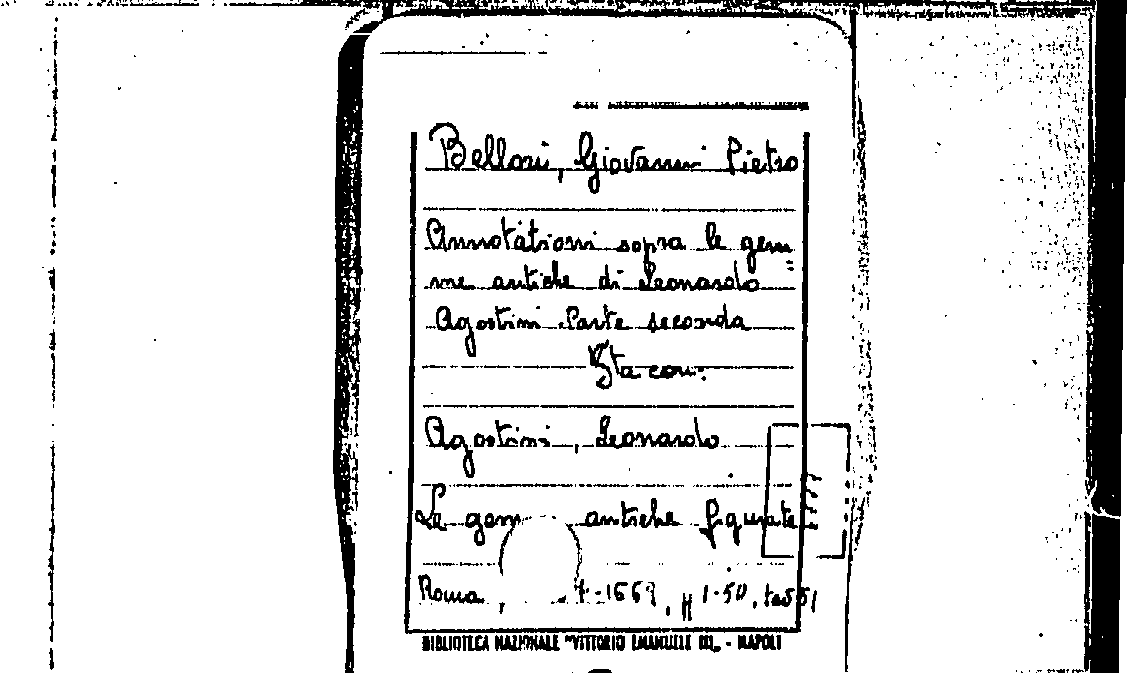 Bellori, Giovanni Pietro
Annotationi sopra le gem=
me antiche di Leonardo
Agostini. Parte seconda
Sta con:
Agostini, Leonardo
Le antiche figurate
Roma, -1669,
BIBLIOTECA NAZIONALE "VITTORIO EMANUELE III" - NAPOLI